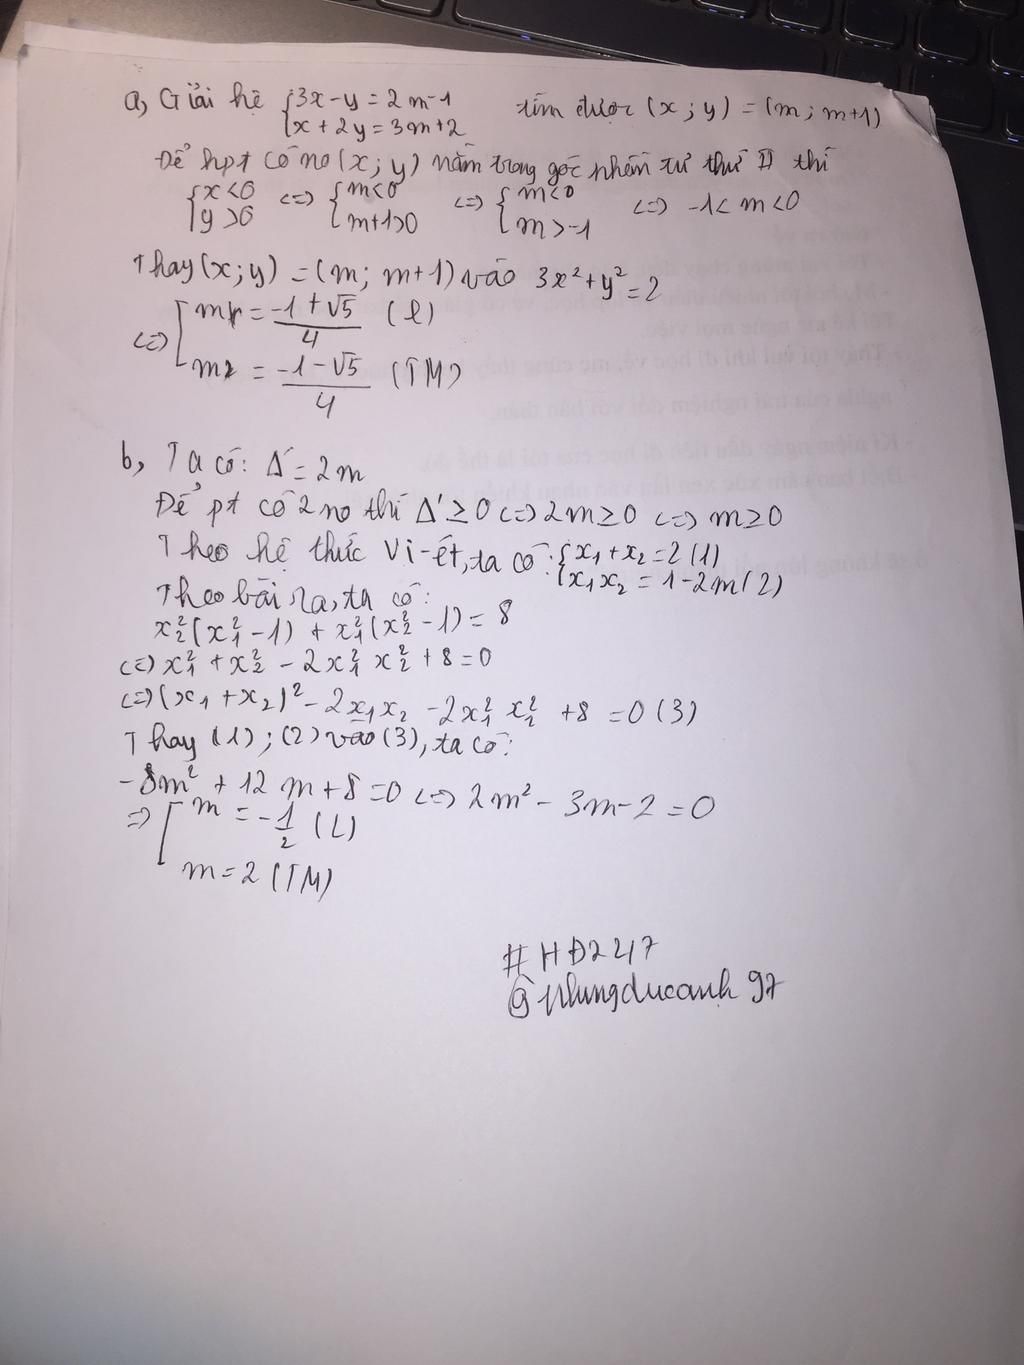 a, Giải hệ { 3x - y = 2m - 1 tìm được (x ; y) = (m ; m+1)
x + 2y = 3m + 2
Để hpt có no (x ; y) nằm trong góc phần tư thứ II thì
{ x < 0 <=> { m < 0 <=> { m < 0 <=> -1 < m < 0
y > 0 m+1 > 0 m > -1
Thay (x ; y) = (m ; m+1) vào 3x² + y² = 2
<=> [ m₁ = (-1 + √5)/4 (l)
m₂ = (-1 - √5)/4 (TM)
b, Ta có: Δ' = 2m
Để pt có 2 no thì Δ' ≥ 0 <=> 2m ≥ 0 <=> m ≥ 0
Theo hệ thức Vi-ét, ta có: { x₁ + x₂ = 2 (1)
x₁x₂ = 1 - 2m (2)
Theo bài ra, ta có:
x₂²(x₁² - 1) + x₁²(x₂² - 1) = 8
<=> x₁² + x₂² - 2x₁² x₂² + 8 = 0
<=> (x₁ + x₂)² - 2x₁x₂ - 2x₁² x₂² + 8 = 0 (3)
Thay (1) ; (2) vào (3), ta có:
-8m² + 12m + 8 = 0 <=> 2m² - 3m - 2 = 0
=> [ m = -1/2 (L)
m = 2 (TM)
#HĐ247
@Nhungducanh97